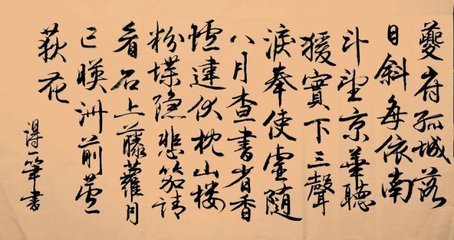 夔府孤城落
日斜每依南
斗望京華聽
猨實下三聲
淚奉使虛隨
八月查書省香
爐違伏枕山樓
粉堞隱悲笳請
看石上藤蘿月
已暎洲前蘆
荻花
得一筆書